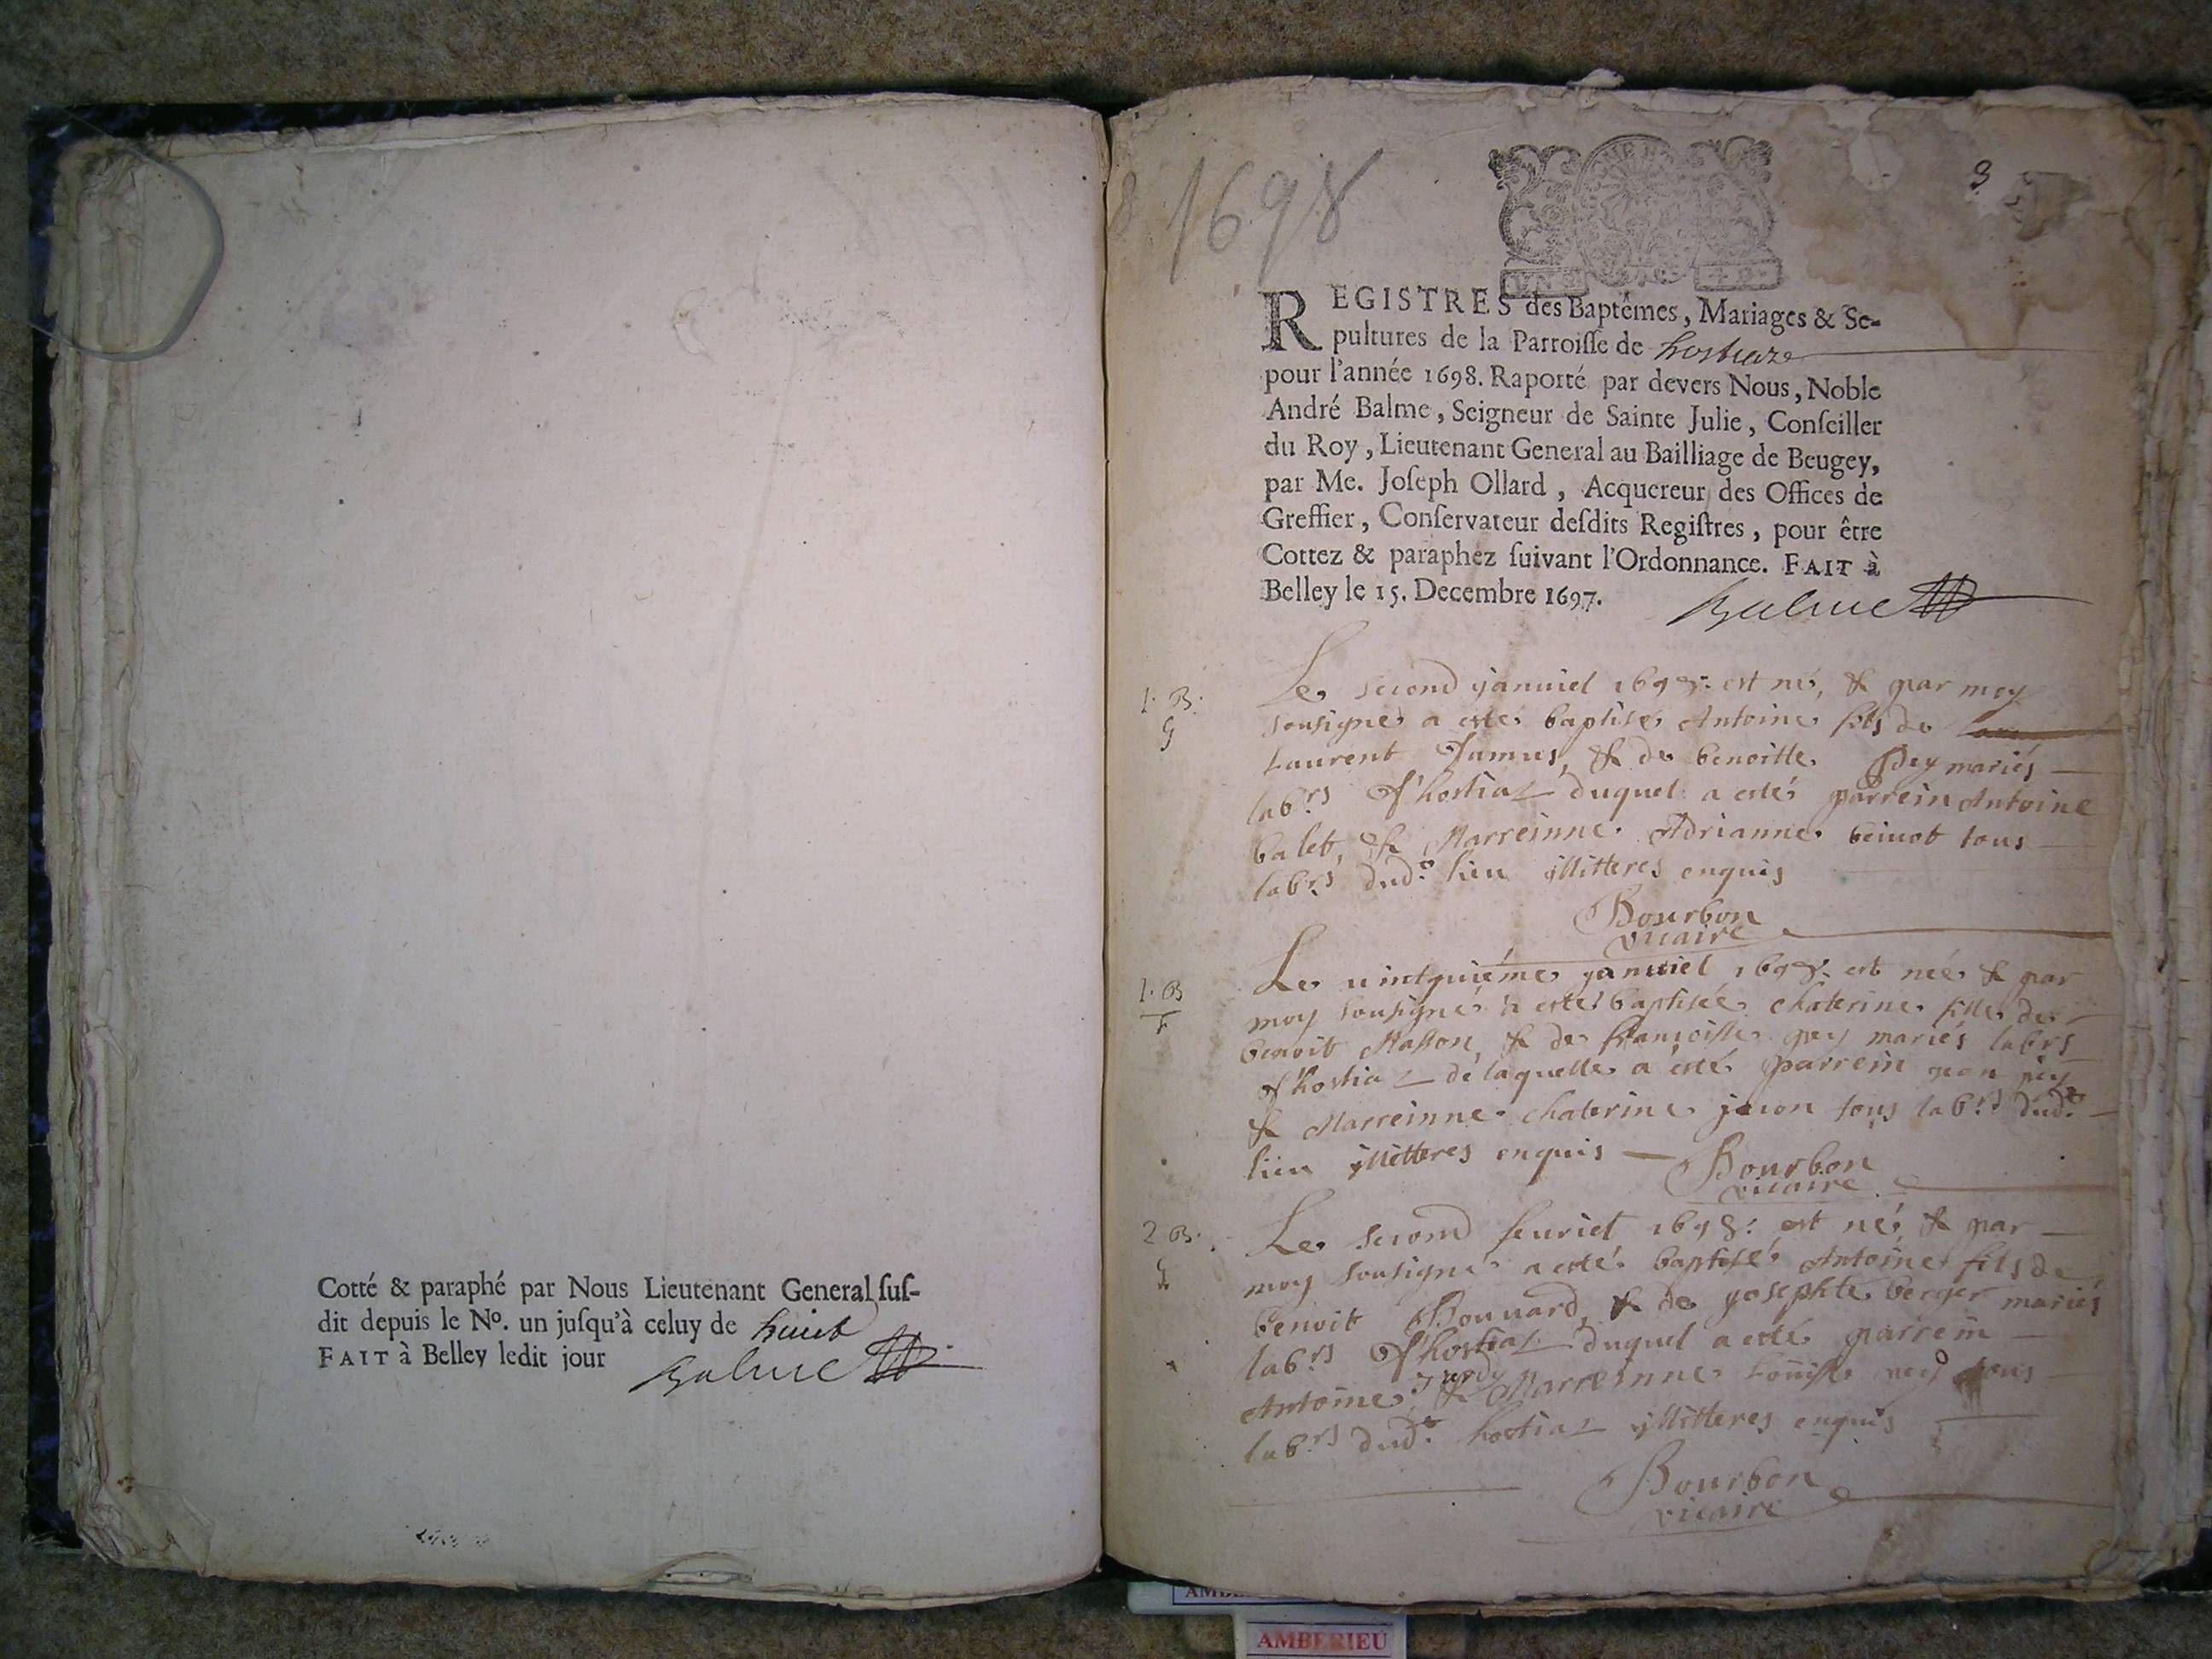 Cotté & paraphé par Nous Lieutenant General ſuſ-
dit depuis le Nº. un juſqu'à celuy de huict
FAIT à Belley ledit jour Balme
1698
3
REGISTRES des Baptêmes, Mariages & Se-
pultures de la Parroiſſe de hostiaz
pour l'année 1698. Raporté par devers Nous, Noble
André Balme, Seigneur de Sainte Julie, Conſeiller
du Roy, Lieutenant General au Bailliage de Beugey,
par Me. Joſeph Ollard, Acquereur des Offices de
Greffier, Conſervateur deſdits Regiſtres, pour être
Cottez & paraphez ſuivant l'Ordonnance. FAIT à
Belley le 15. Decembre 1697.
Balme
1. B.
G
Le second 1698. est né, & par moy
sousigné a esté baptisé Antoine fils de
Laurent & de benoitte mariés
labrs d'hostiaz duquel a esté parrein Antoine
balet, & Marreinne Adrianne tous
labrs dud. lieu illitteres enquis
Bourbon
vicaire
1. B
F
Le 1698. est née & par
moy sousigné a esté baptisée chaterine fille de
benoit Masson, & de françoisse mariés labrs
d'hostiaz de laquelle a esté parrein
& Marreinne chaterine tous labrs dud.
lieu illitteres enquis Bourbon
vicaire
2 B.
G
Le second 1698. est né, & par
moy sousigné a esté baptisé Antoine fils de
benoit Bonnard, & de josephte berger mariés
labrs d'hostiaz duquel a esté parrein
Antoine & Marreinne Louisse tous
labrs dud. hostiaz illitteres enquis
Bourbon
vicaire
AMBERIEU